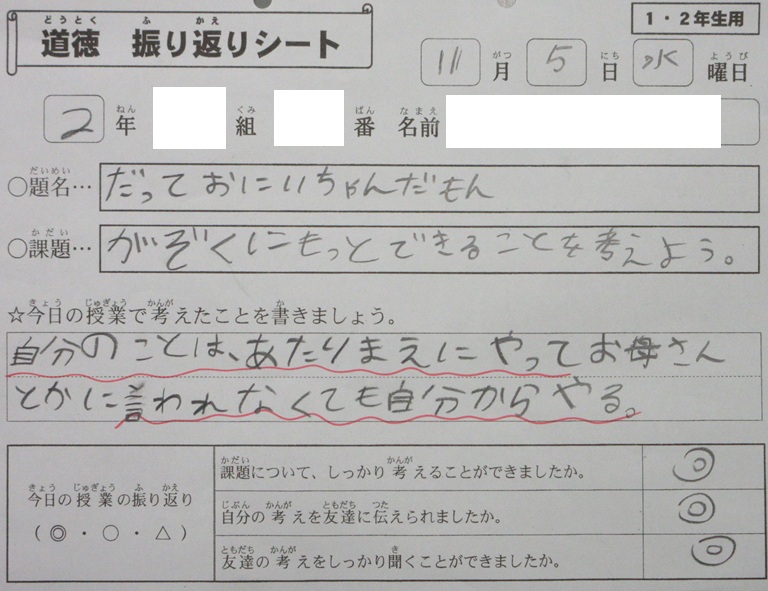 道徳 振り返りシート
1・2年生用
11月5日水曜日
2年 組 番 名前
○題名… だっておにいちゃんだもん
○課題… がぞくにもっとできることを考えよう。
☆今日の授業で考えたことを書きましょう。
自分のことは、あたりまえにやってお母さん
とかに言われなくても自分からやる。
今日の授業の振り返り
(◎・○・△)
課題について、しっかり考えることができましたか。 ◎
自分の考えを友達に伝えられましたか。 ◎
友達の考えをしっかり聞くことができましたか。 ◎